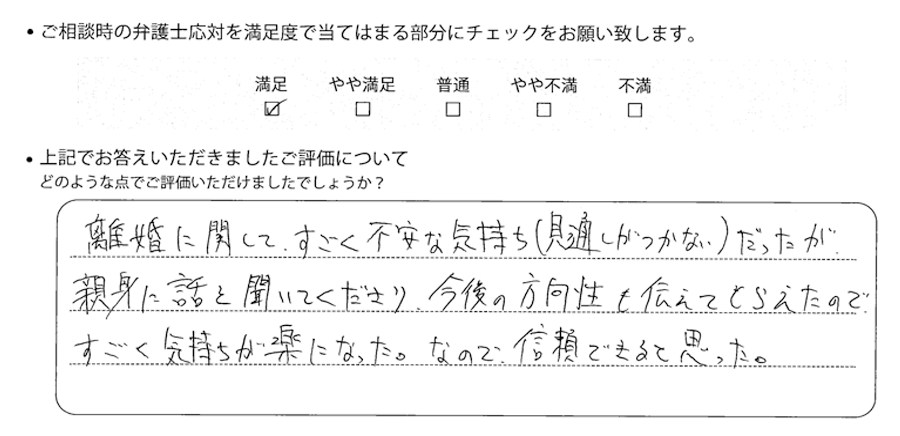 • ご相談時の弁護士応対を満足度で当てはまる部分にチェックをお願い致します。
満足 やや満足 普通 やや不満 不満
☑ ☐ ☐ ☐ ☐
• 上記でお答えいただきましたご評価について
どのような点でご評価いただけましたでしょうか？
離婚に関して、すごく不安な気持ち(見通しがつかない)だったが、
親身に話を聞いてくださり、今後の方向性も伝えてもらえたので、
すごく気持ちが楽になった。なので、信頼できると思った。